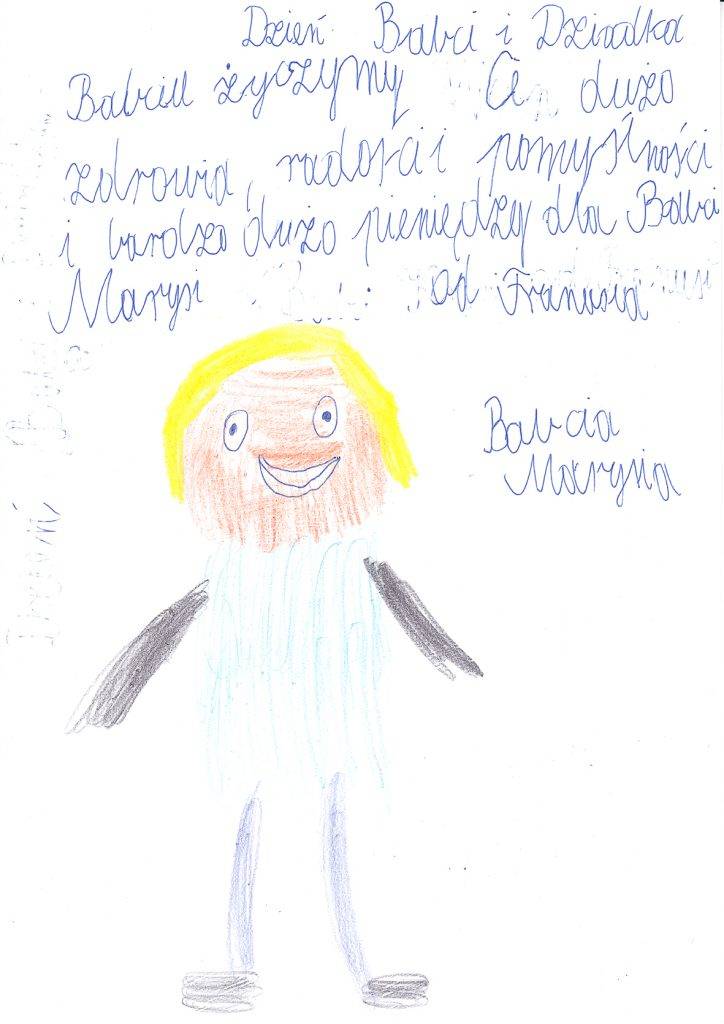 Dzień Babci i Dziadka
Babciu życzymy Ci dużo
zdrowia, radości i pomyślności
i bardzo dużo pieniędzy dla Babci
Marysi od Franusia
Babcia
Marysia